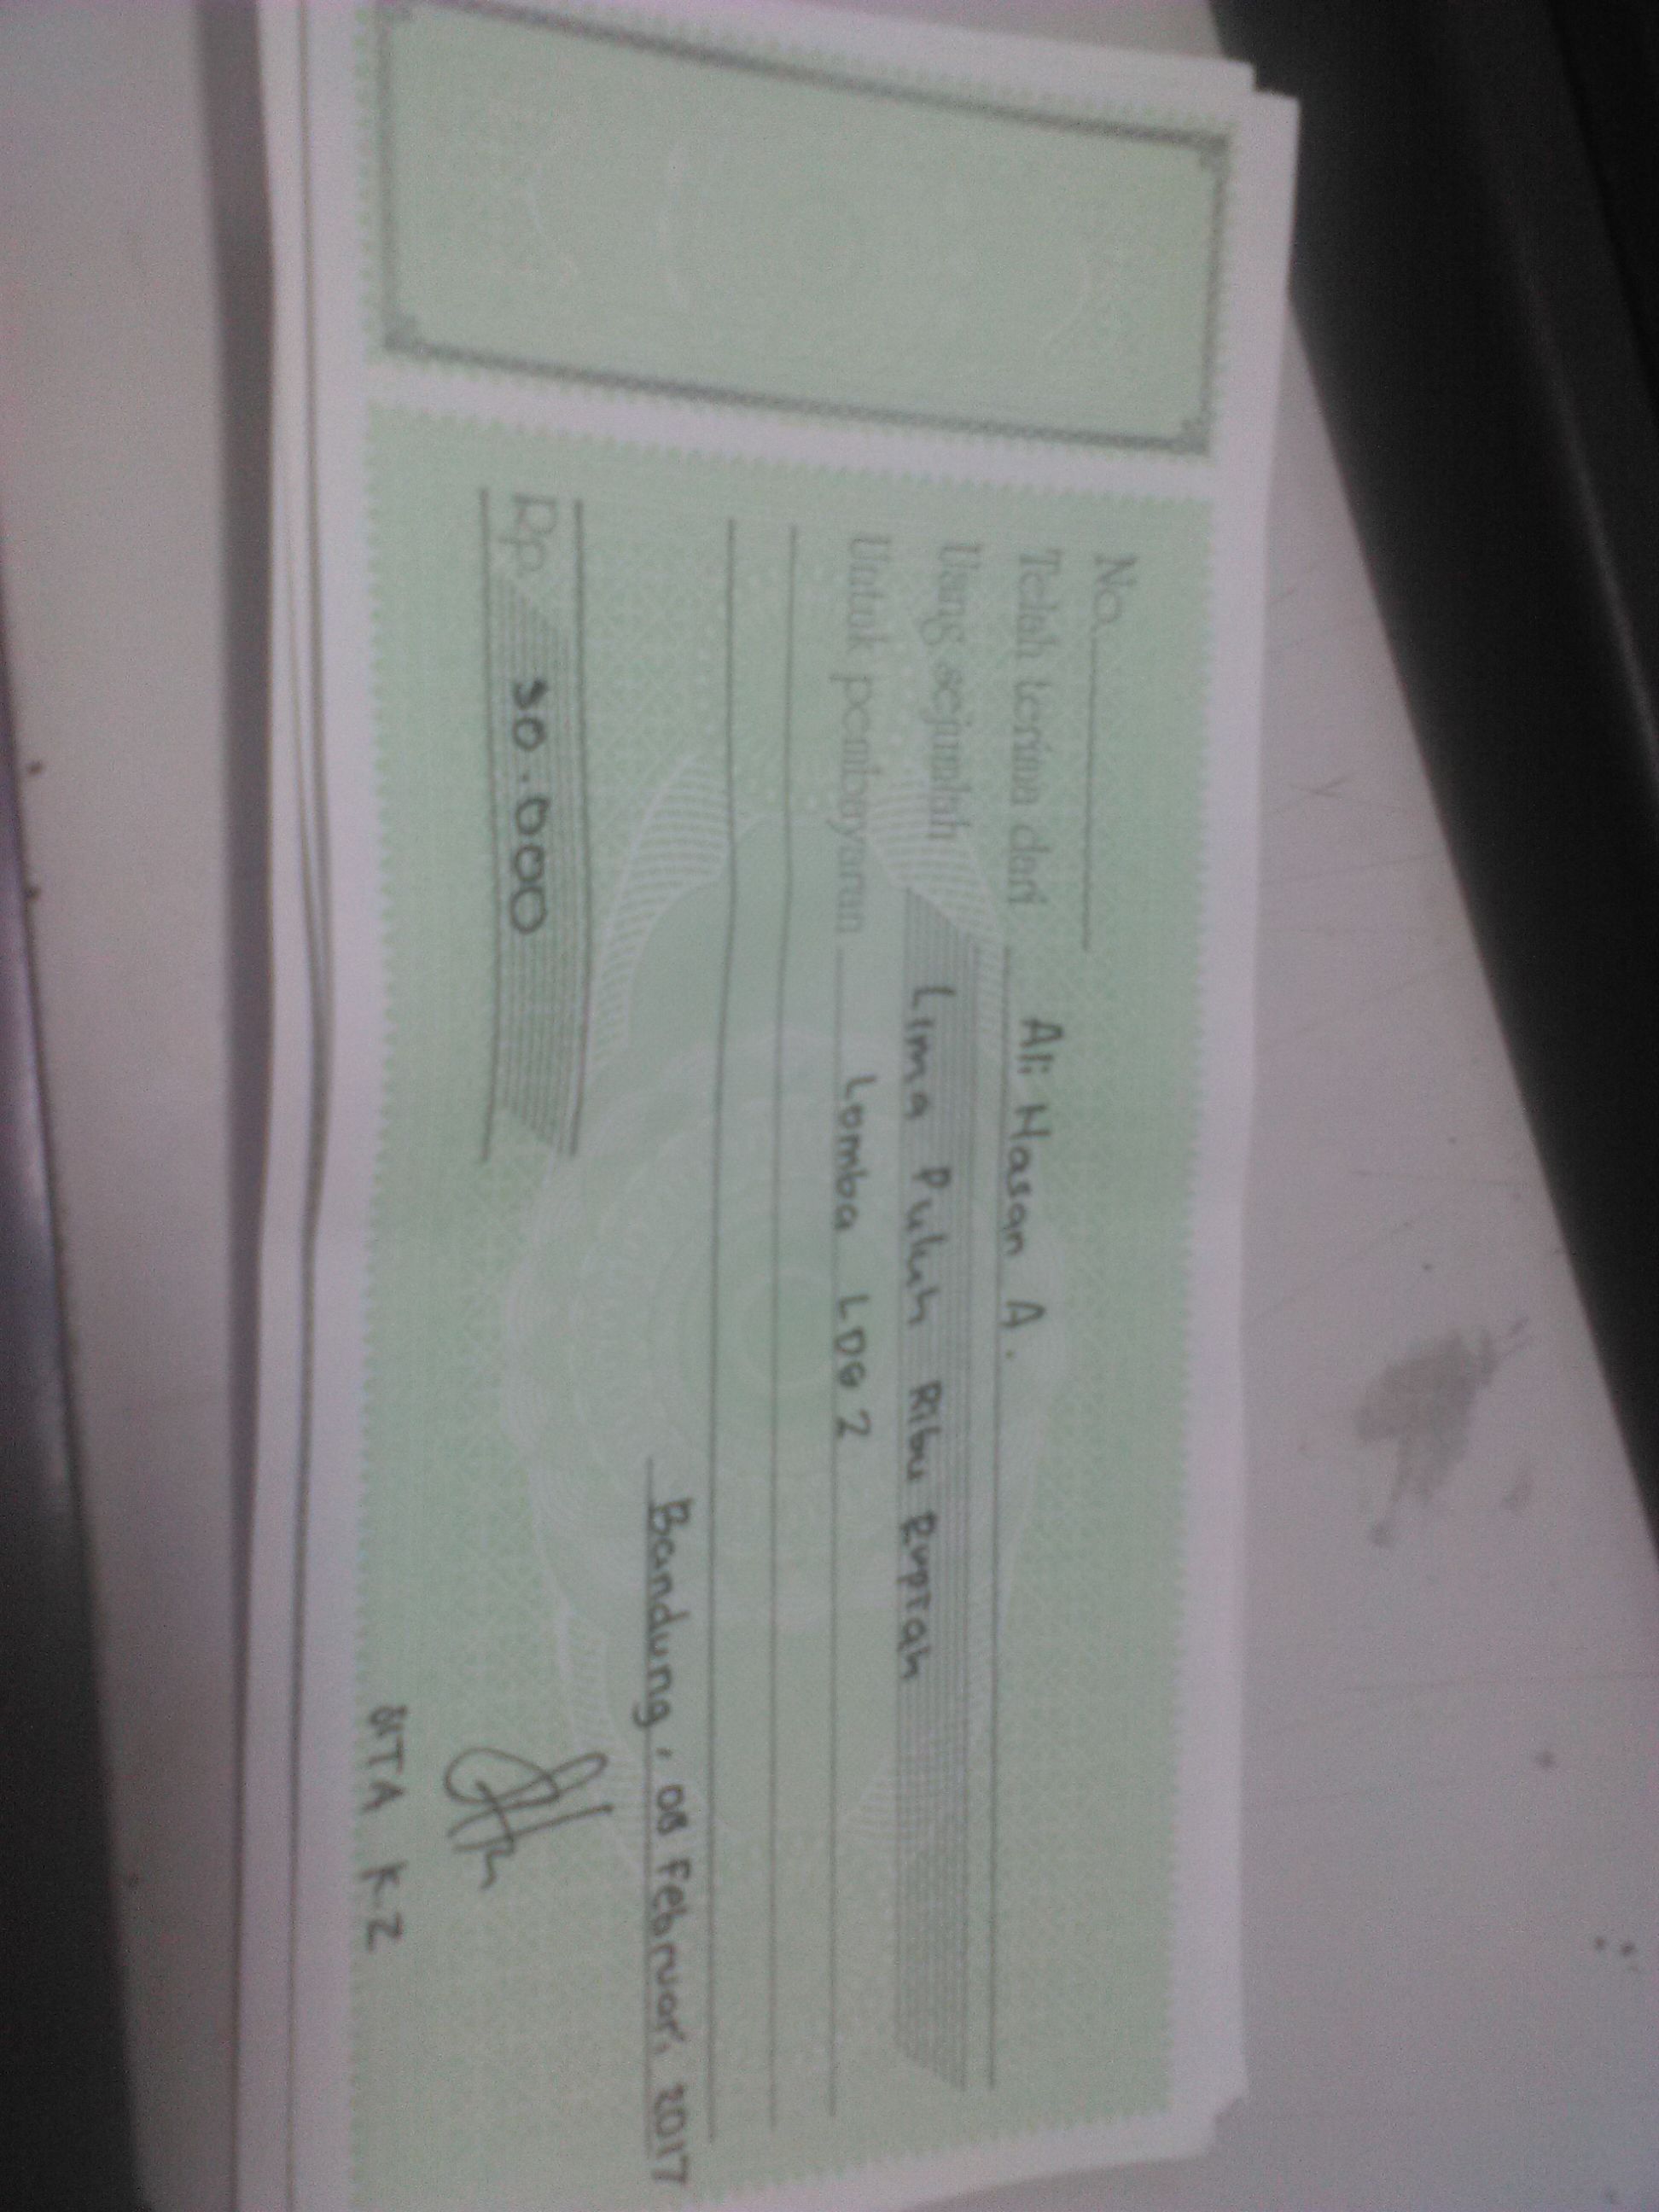 No.
Telah terima dari Ali Hasan A.
Uang sejumlah Lima Puluh Ribu Rupiah
Untuk pembayaran Lomba LDG 2
Bandung, 08 Februari 2017
Rp. 50.000
NTA K.2